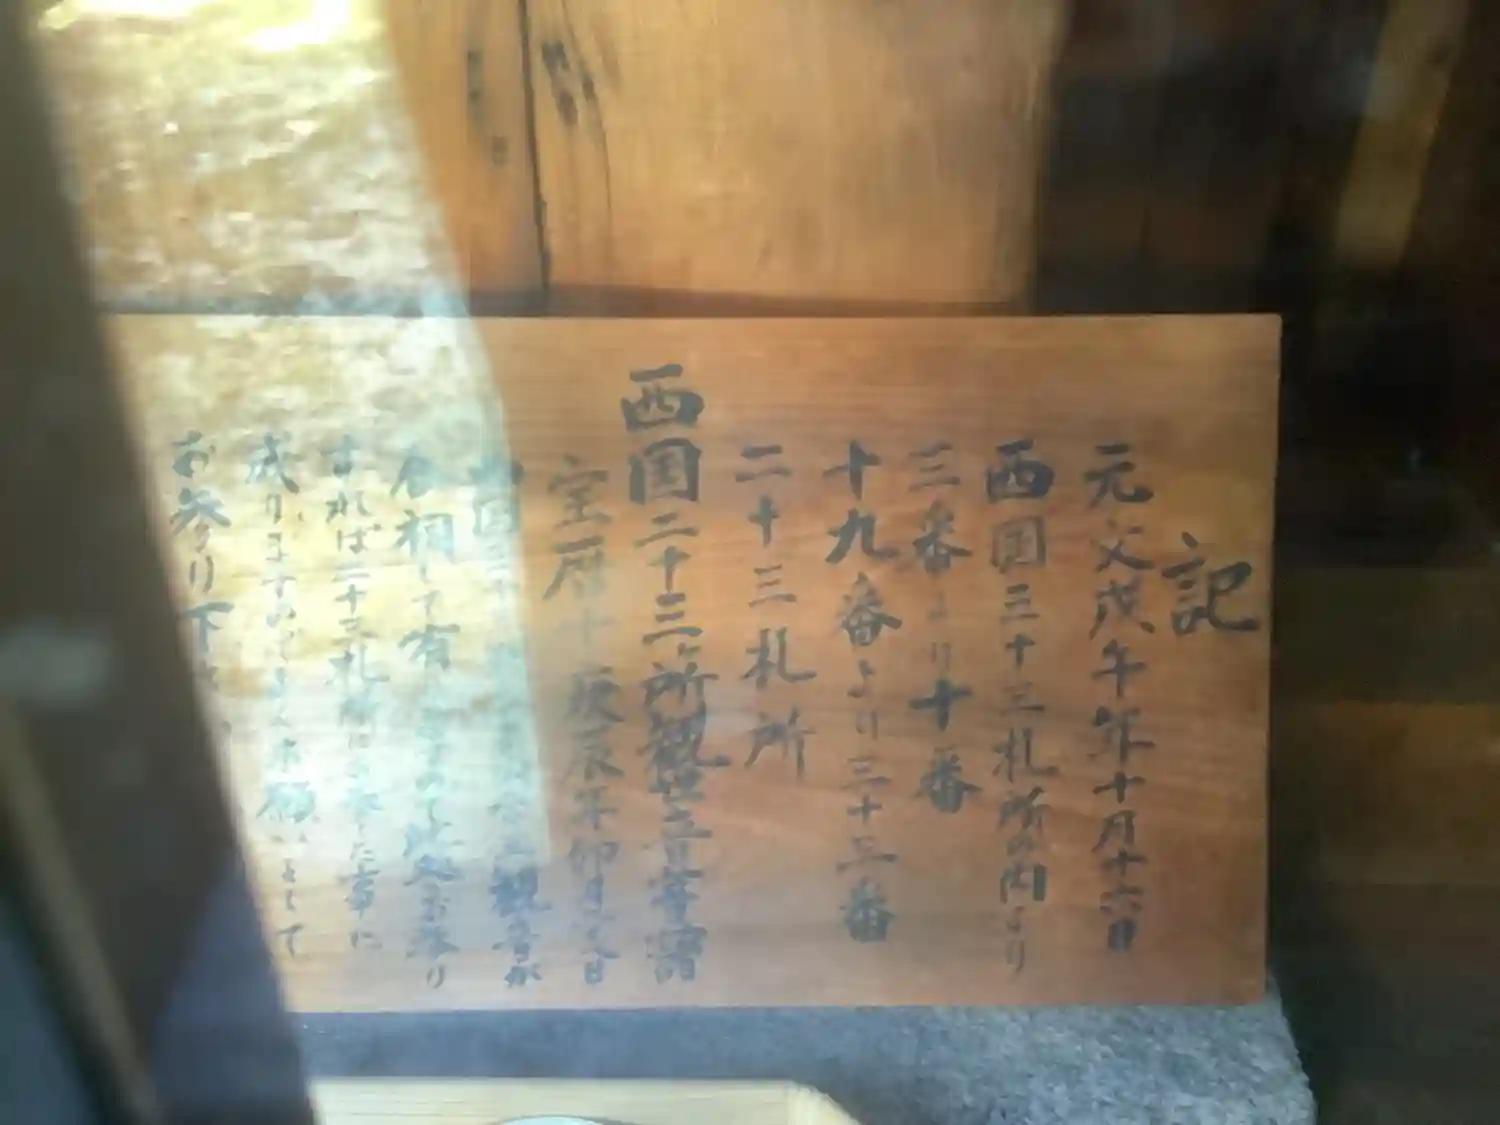 記
元文戊午年十月十六日
西国三十三札所の内より
三番より十番
十九番より三十三番
二十三札所
西国二十三ヶ所観世音菩薩
宝暦十庚辰年卯月
観音が
合祠して有
お参り
すれば二十三札所にお参りした事に
成りますの 願いとして
お参り下